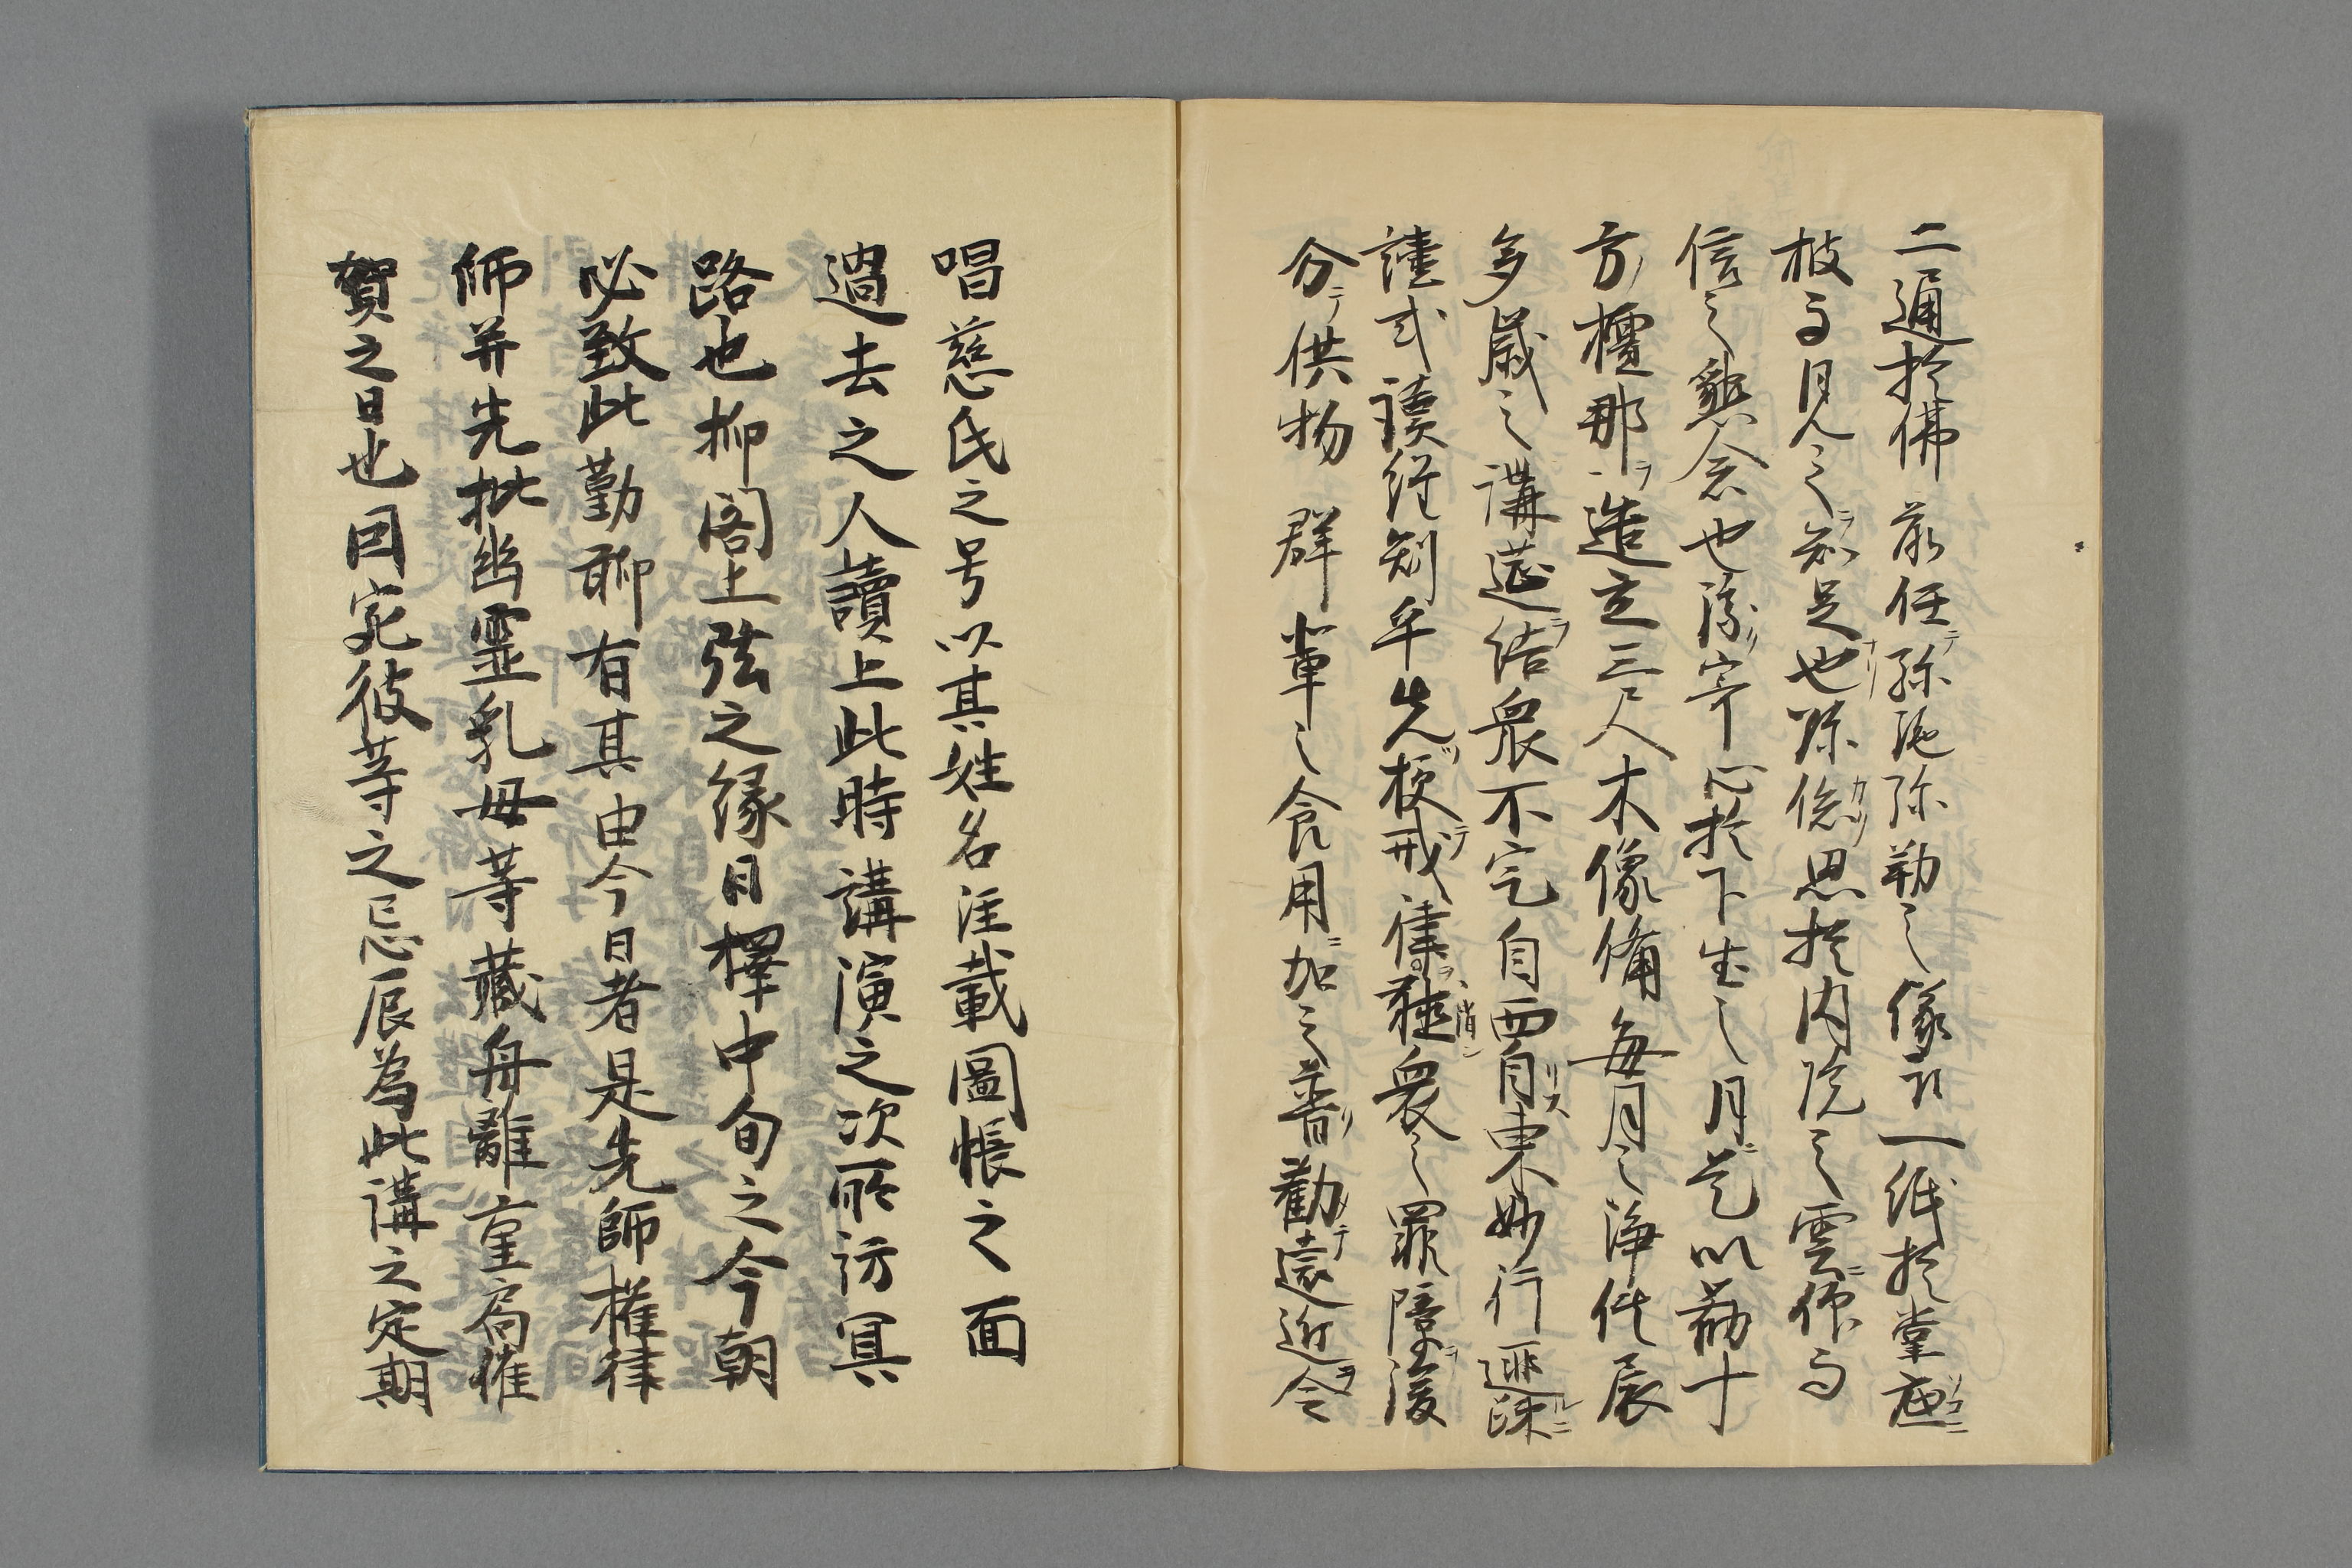 二通於佛前任弥陀弥勒之像訖一紙於堂
披之見之知足也除思於内院之雲作
信之懇念也後寄心於下生之月是以勸十
方檀那造立三尺木像備毎月之浄供展
多歳之講莚結衆不定自西自東妙行
讀式讀經剋乎先衆之罪障後
分供物群輩之食用加之普勸遠近令
唱慈氏之号以其姓名注載圖帳之面
過去之人讀上此時講演之次所訪冥
路也抑閣上弦之縁日擇中旬之今朝
必致此勤聊有其由今日者是先師權律
師并先批幽霊乳母等藏舟離
賀之日也因宛彼等之忌辰為此講之定期